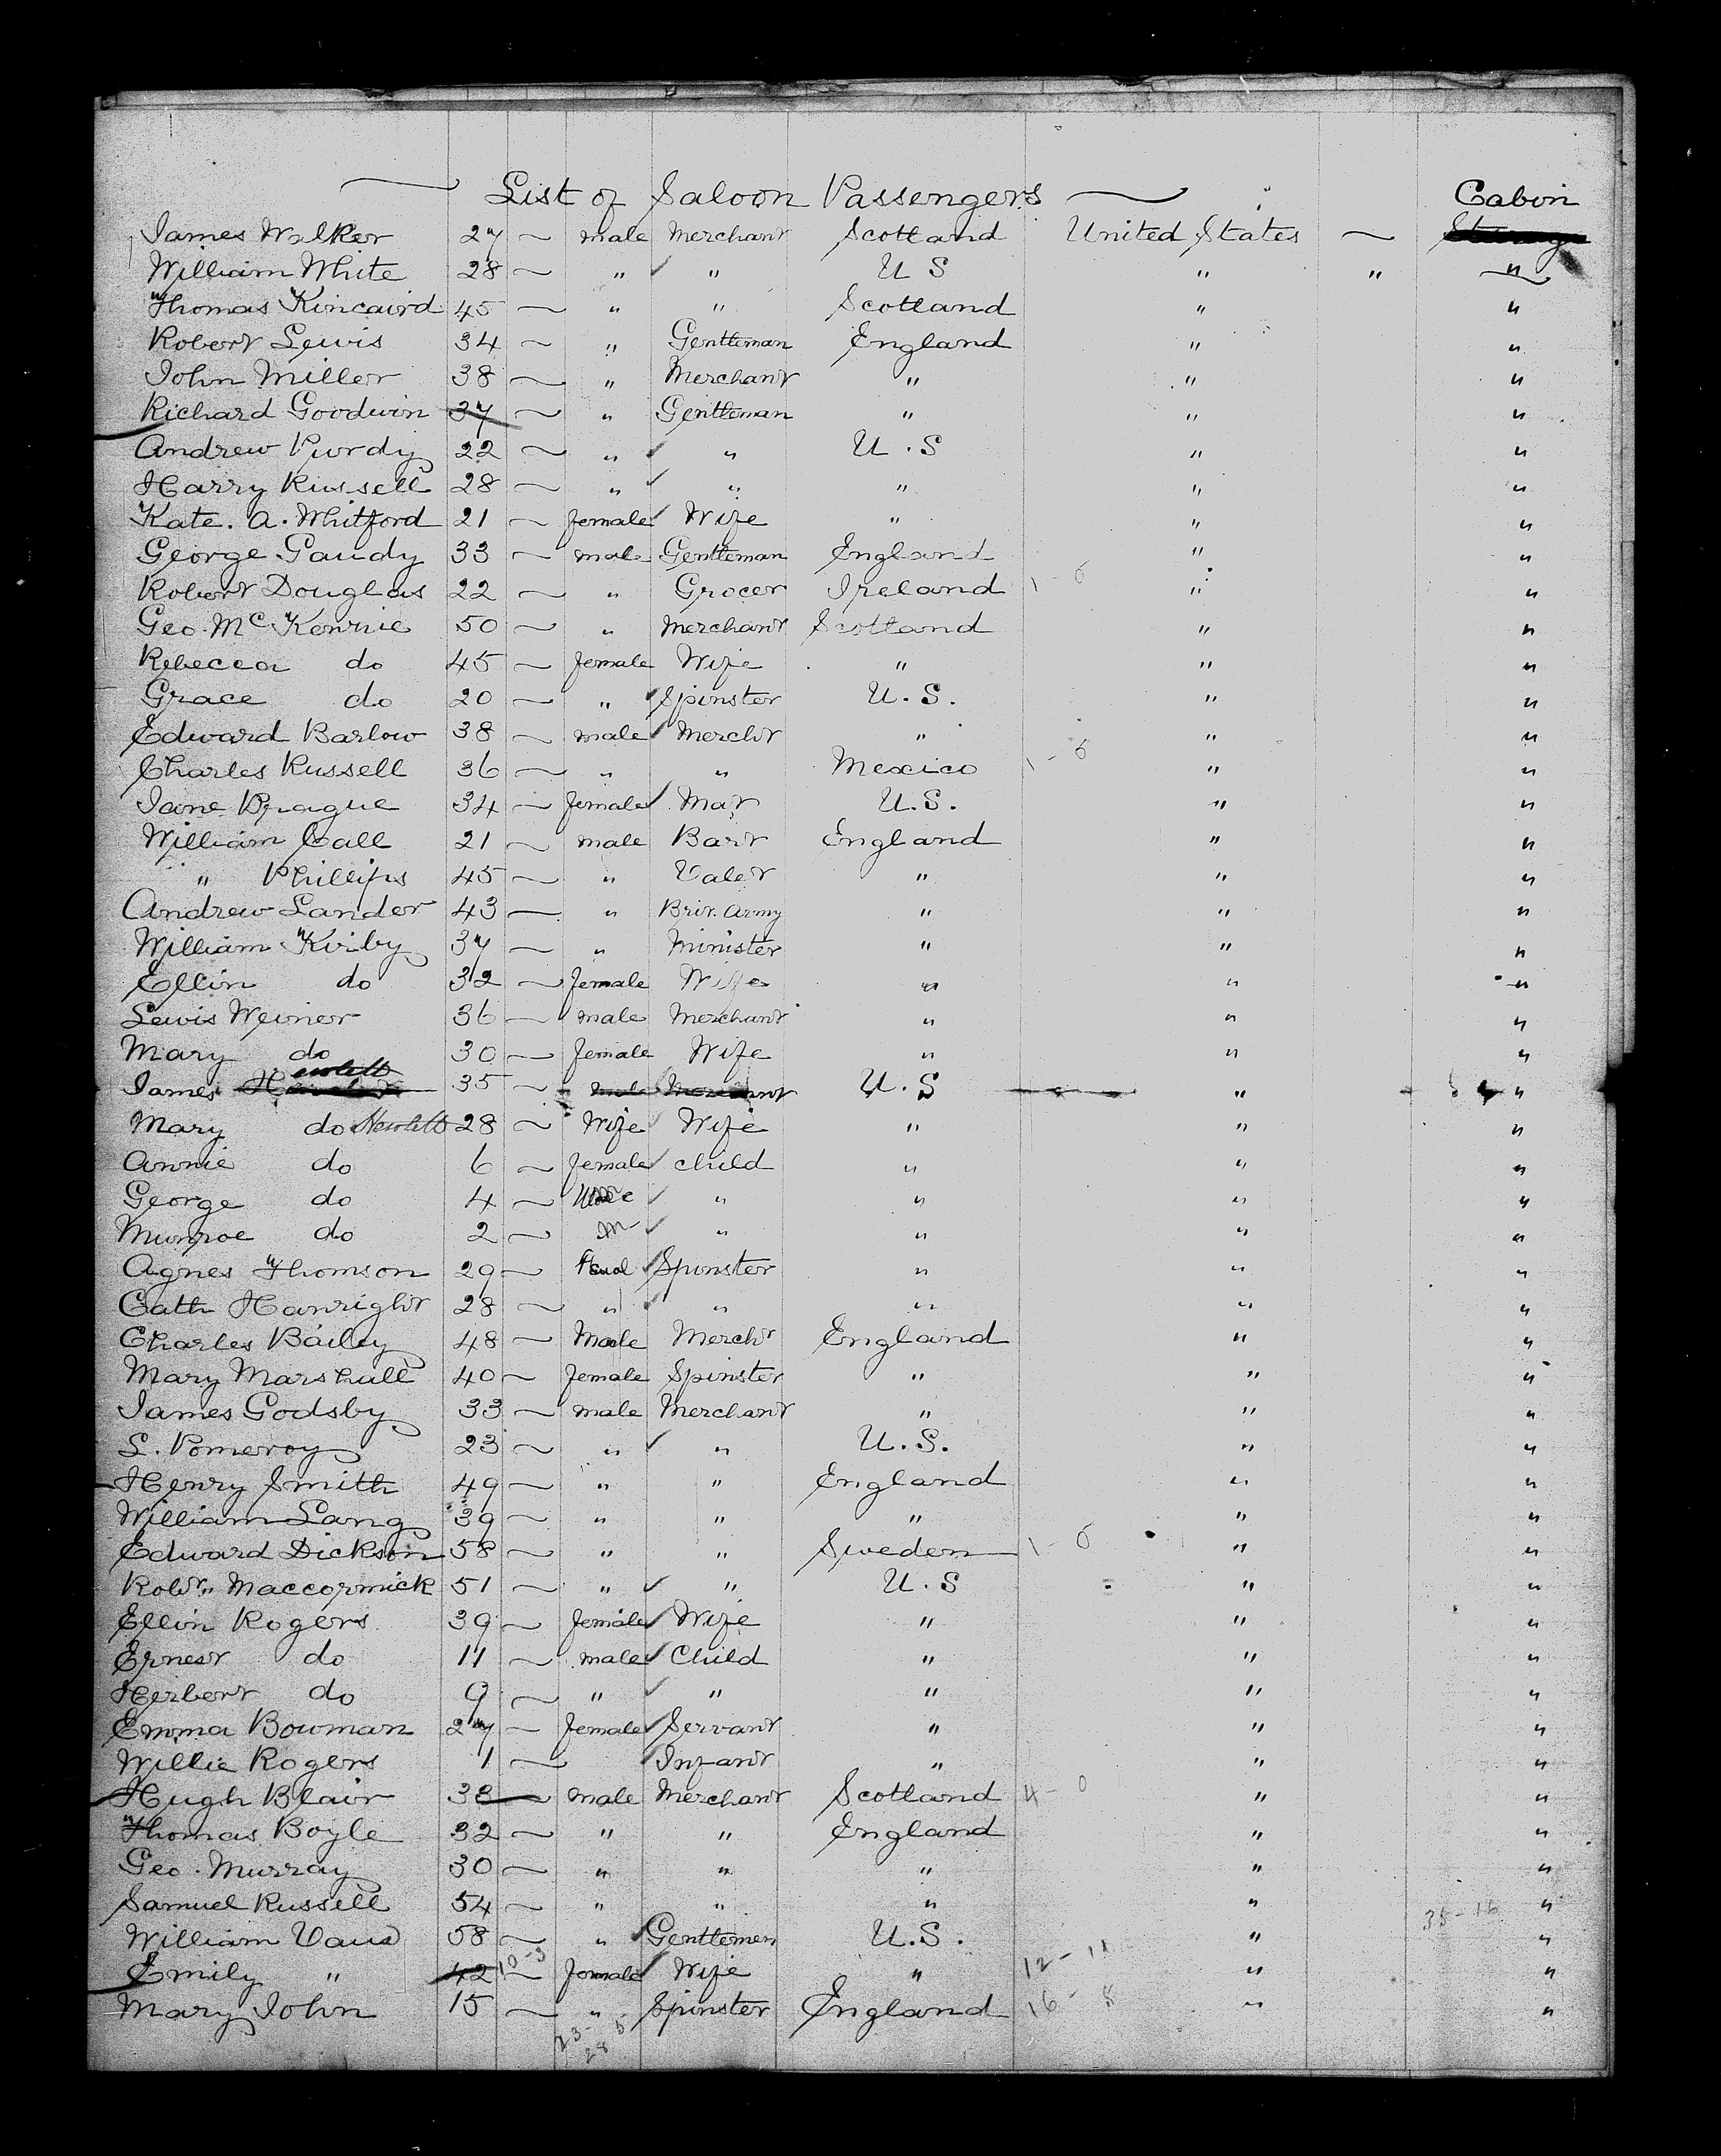 List of Saloon Passengers Cabin
James Walker 27 male Merchant Scotland United States
William White 28 " " U S " " "
Thomas Kincaird 45 " " Scotland " "
Robert Lewis 34 " Gentleman England " "
John Miller 38 " Merchant " " "
Richard Goodwin 37 " Gentleman " " "
Andrew Purdy 22 " " U.S " "
Harry Russell 28 " " " " "
Kate. A. Whitford 21 female Wife " " "
George Gandy 33 male Gentleman England " "
Robert Douglas 22 " Grocer Ireland 1-0 " "
Geo. McKenrie 50 " Merchant Scotland " "
Rebecca do 45 female Wife " " "
Grace do 20 " Spinster U.S. " "
Edward Barlow 38 male Mercht " " "
Charles Russell 36 " " Mexico 1-0 " "
Jane 34 female Mat U.S. " "
William Call 21 male Bart England " "
" Phillips 45 " Valet " " "
Andrew Lander 43 " Brit. Army " " "
William Kirby 37 " Minister " " "
Ellin do 32 female Wife " " "
Lewis Weiner 36 male Merchant " " "
Mary do 30 female Wife " " "
James 35 male Merchant U.S " "
Mary do Hewlett 28 Wife Wife " " "
Annie do 6 female child " " "
George do 4 " " " "
Munroe do 2 m " " " "
Agnes Thomson 29 Spinster " " "
Cath Hanright 28 " " " " "
Charles Bailey 48 Male Mercht England " "
Mary Marshall 40 female Spinster " " "
James Godsby 33 male Merchant " " "
L. Pomeroy 23 " " U.S. " "
Henry Smith 49 " " England " "
William Lang 39 " " " " "
Edward Dickson 58 " " Sweden 1-0 " "
Robt. Maccormick 51 " " U.S " "
Ellin Rogers 39 female Wife " " "
Ernest do 11 male Child " " "
Herbert do 9 " " " " "
Emma Bowman 27 female Servant " " "
Willie Rogers 1 Infant " " "
Hugh Blair 38 male Merchant Scotland 4-0 " "
Thomas Boyle 32 " " England " "
Geo. Murray 30 " " " " "
Samuel Russell 54 " " " " "
William Vaus 58 " Gentlemen U.S. " 35-16 "
Emily " 42 10-9 female Wife " 12-11 " "
Mary John 15 " Spinster England 16-8 " "
23-5
28